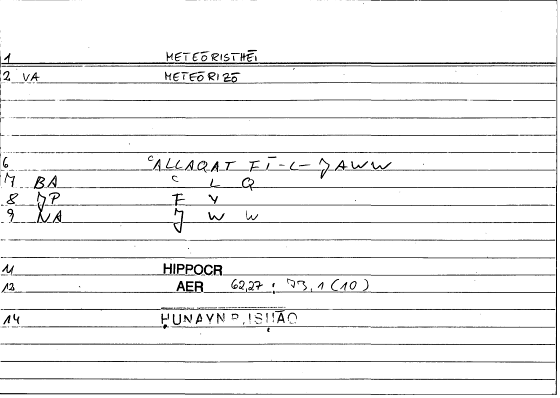 1 METEŌRISTHĒI
2 VA METEŌRIZŌ
6 ʿALLAQAT FĪ-L-JAWW
7 BA ʿ L Q
8 JP F Y
9 NA J W W
11 HIPPOCR
13 AER 62,27 : 73,1 (10)
14 ḤUNAYN B. ISḤĀQ